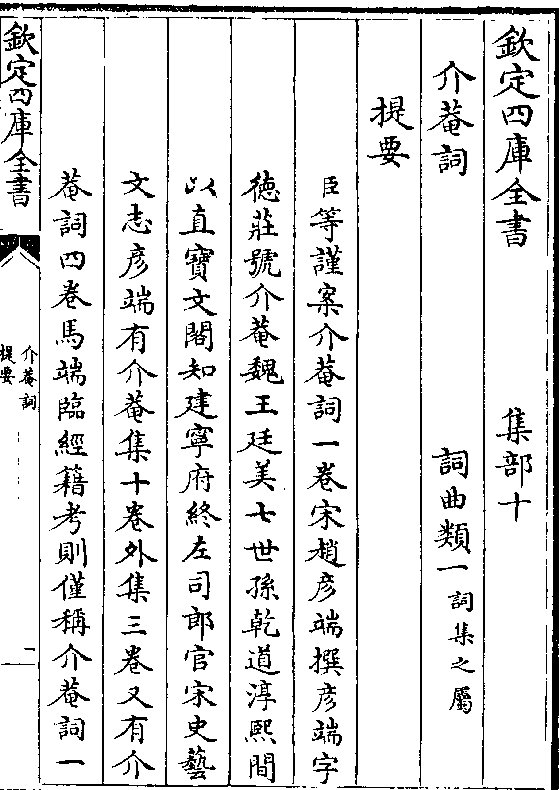 欽定四庫全書 集部十
介菴詞 詞曲類一詞集之屬
提要
臣等謹案介菴詞一卷宋趙彥端撰彥端字
德莊號介菴魏王廷美七世孫乾道淳熙間
以直寶文閣知建寧府終左司郎官宋史藝
文志彥端有介菴集十卷外集三卷又有介
菴詞四卷馬端臨經籍考則僅稱介菴詞一
欽定四庫全書
介菴詞
提要